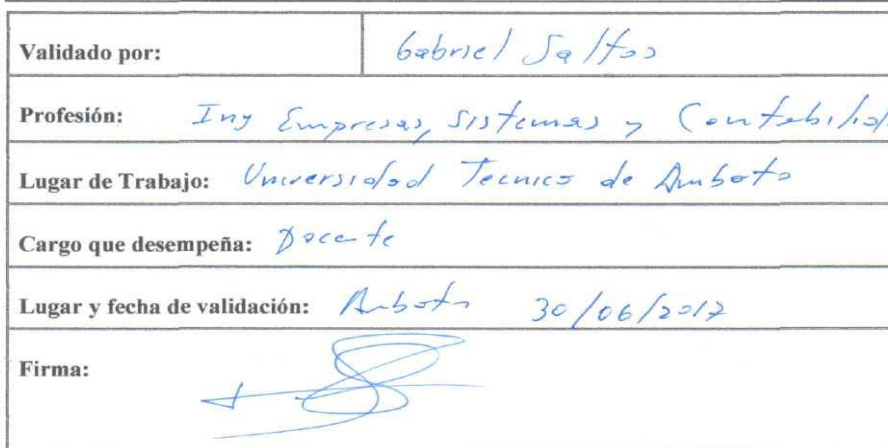 Validado por: Gabriel Saltos
Profesión: Ing Empresas, Sistemas y Contabilid
Lugar de Trabajo: Universidad Tecnica de Ambato
Cargo que desempeña: Docente
Lugar y fecha de validación: Ambato 30/06/2017
Firma: